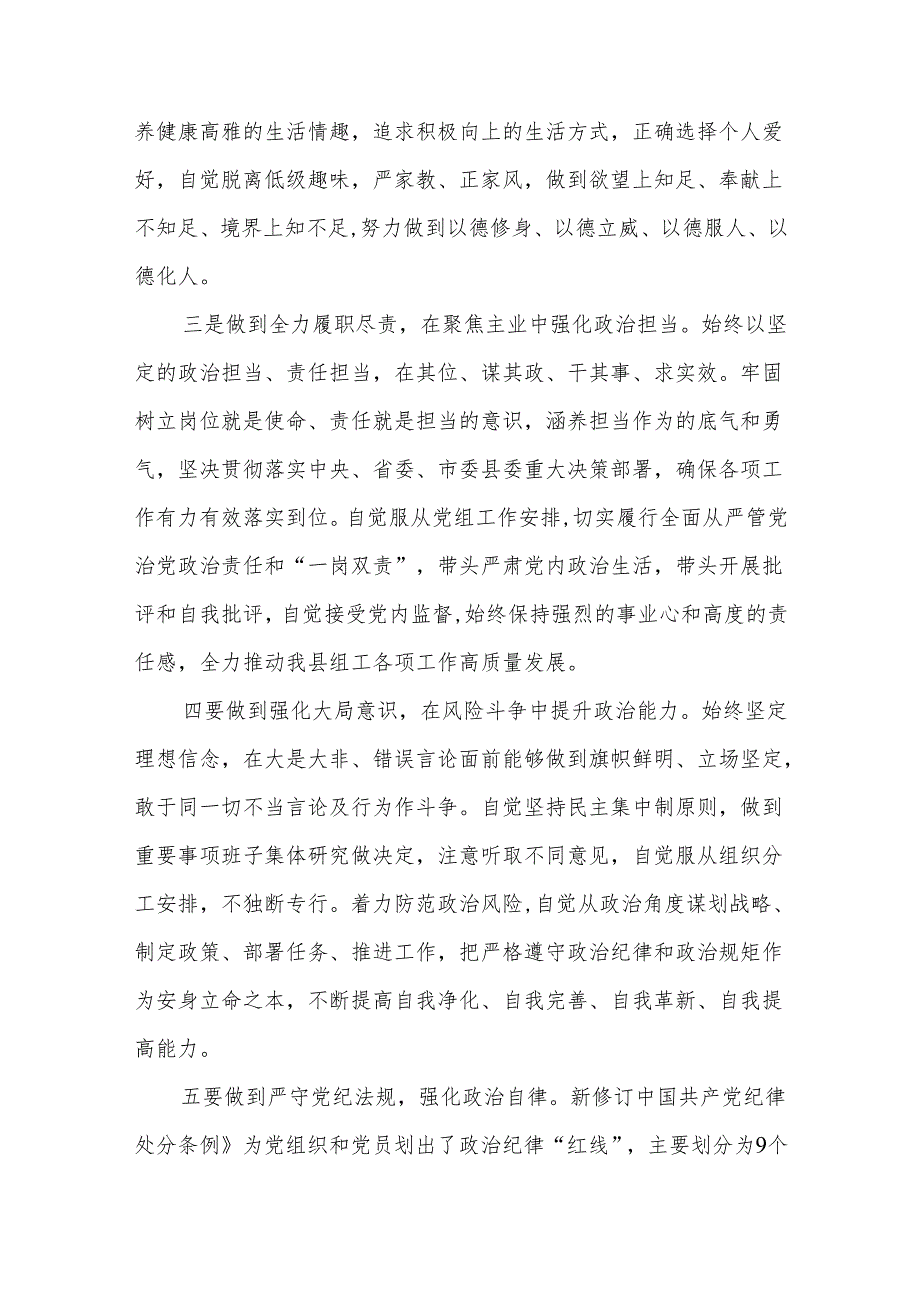 养健康高雅的生活情趣，追求积极向上的生活方式，正确选择个人爱
好，自觉脱离低级趣味，严家教、正家风，做到欲望上知足、奉献上
不知足、境界上知不足,努力做到以德修身、以德立威、以德服人、以
德化人。
三是做到全力履职尽责，在聚焦主业中强化政治担当。始终以坚
定的政治担当、责任担当，在其位、谋其政、干其事、求实效。牢固
树立岗位就是使命、责任就是担当的意识，涵养担当作为的底气和勇
气，坚决贯彻落实中央、省委、市委县委重大决策部署，确保各项工
作有力有效落实到位。自觉服从党组工作安排,切实履行全面从严管党
治党政治责任和“一岗双责”，带头严肃党内政治生活，带头开展批
评和自我批评，自觉接受党内监督,始终保持强烈的事业心和高度的责
任感，全力推动我县组工各项工作高质量发展。
四要做到强化大局意识，在风险斗争中提升政治能力。始终坚定
理想信念，在大是大非、错误言论面前能够做到旗帜鲜明、立场坚定，
敢于同一切不当言论及行为作斗争。自觉坚持民主集中制原则，做到
重要事项班子集体研究做决定，注意听取不同意见，自觉服从组织分
工安排，不独断专行。着力防范政治风险,自觉从政治角度谋划战略、
制定政策、部署任务、推进工作，把严格遵守政治纪律和政治规矩作
为安身立命之本，不断提高自我净化、自我完善、自我革新、自我提
高能力。
五要做到严守党纪法规，强化政治自律。新修订中国共产党纪律
处分条例》为党组织和党员划出了政治纪律“红线”，主要划分为9个